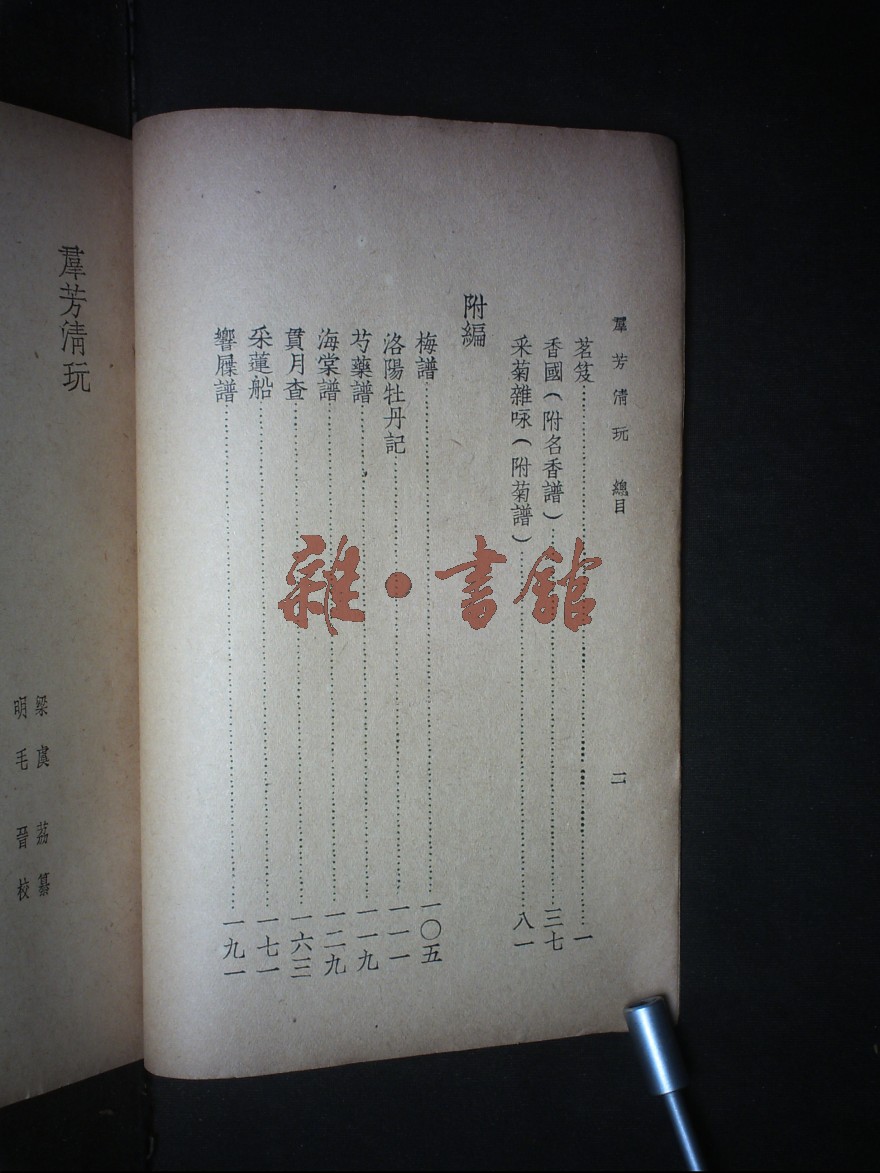 羣芳清玩 總目
二
茗笈……一
香國(附名香譜)……三七
采菊雜咏(附菊譜)……八一
附編
梅譜……一〇五
洛陽牡丹記……一一一
芍藥譜……一一九
海棠譜……一二九
貫月查……一六三
采蓮船……一七一
響屧譜……一九一
羣芳清玩
梁虞 荔纂
明毛 晉校
雜·書館